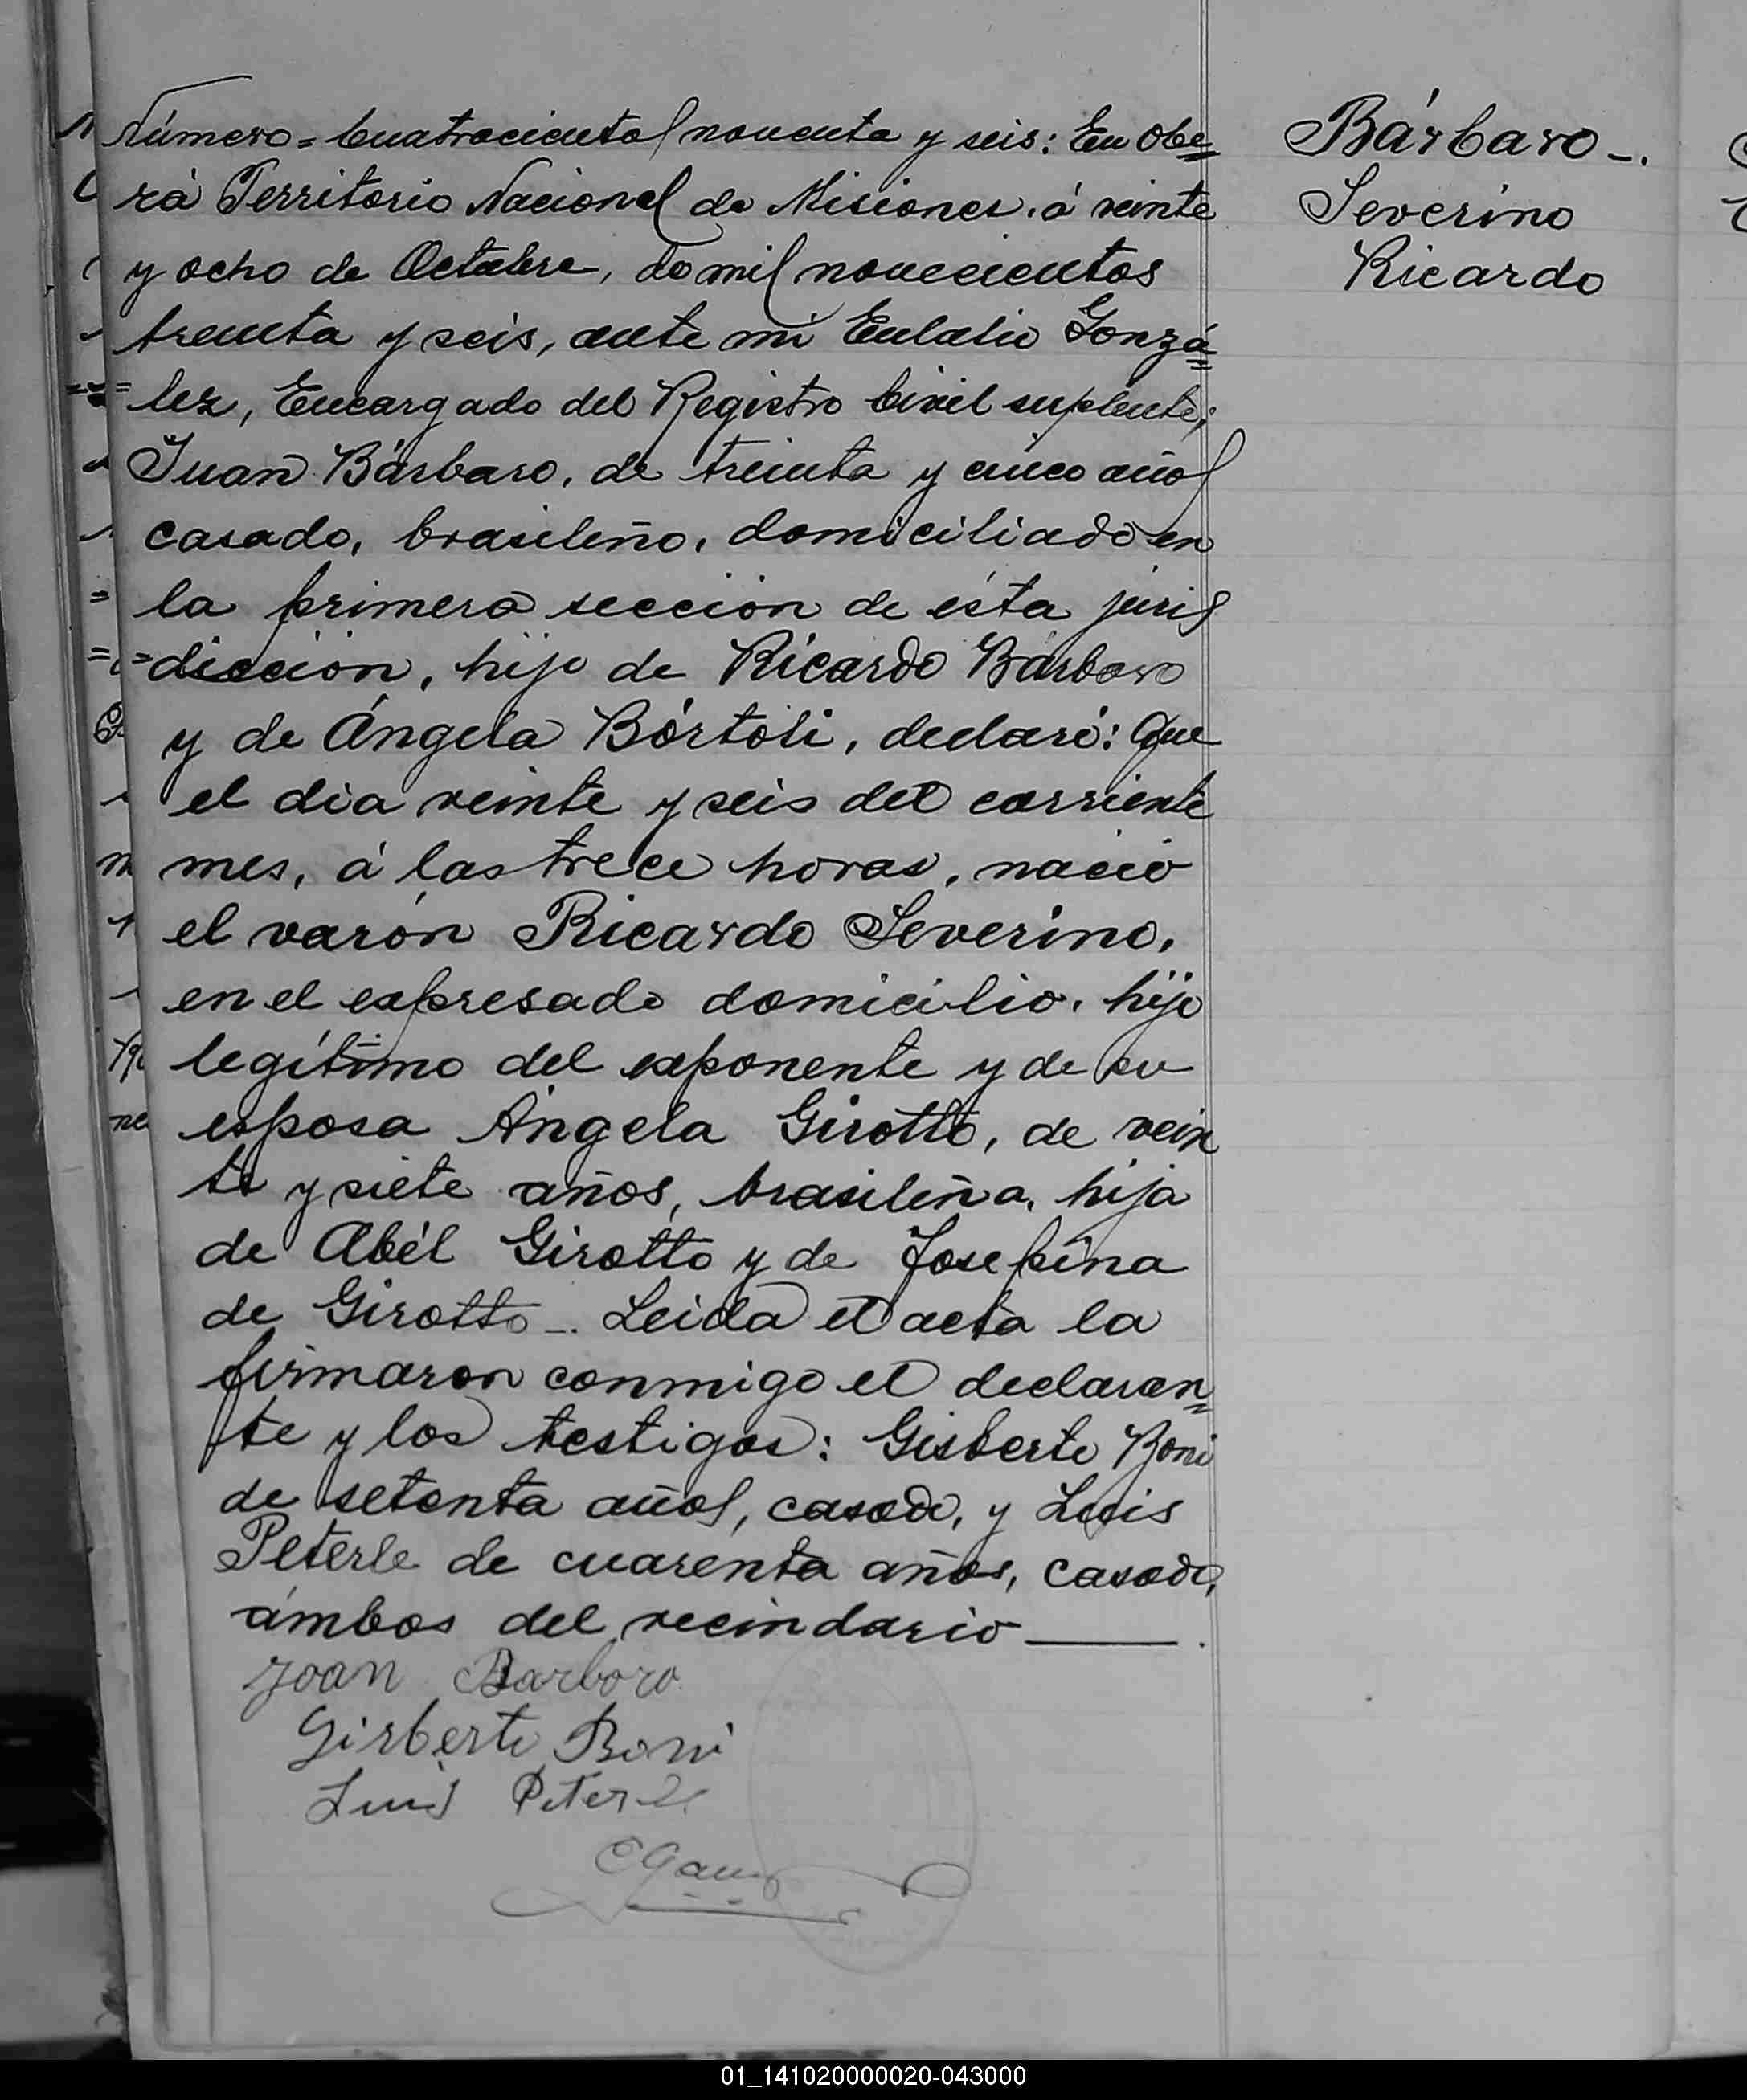 Número = Cuatrocientos noventa y seis: En Obe=
rá Territorio Nacional de Misiones, á veinte
y ocho de Octubre, de mil novecientos
treinta y seis, ante mi Eulalio Gonzá=
lez, Encargado del Registro Civil suplente;
Juan Bárbaro, de treinta y cinco años
casado, brasileño, domiciliado en
la primera sección de ésta juris
=dicción, hijo de Ricardo Bárbaro
y de Ángela Bórtoli, declaró: Que
el dia veinte y seis del corriente
mes, á las trece horas, nació
el varón Ricardo Severino,
en el expresado domicilio, hijo
legítimo del exponente y de su
esposa Ángela Girotto, de vein
te y siete años, brasileña, hija
de Abél Girotto y de Josefina
de Girotto_. Leida el acta la
firmaron conmigo el declaran=
te y los testigos: Gisberto Boni
de setenta años, casado, y Luis
Peterle de cuarenta años, casado,
ámbos del vecindario
Joan Barboro
Girberto Boni
Luis Peterle
Bárbaro_.
Severino
Ricardo
01_141020000020-043000